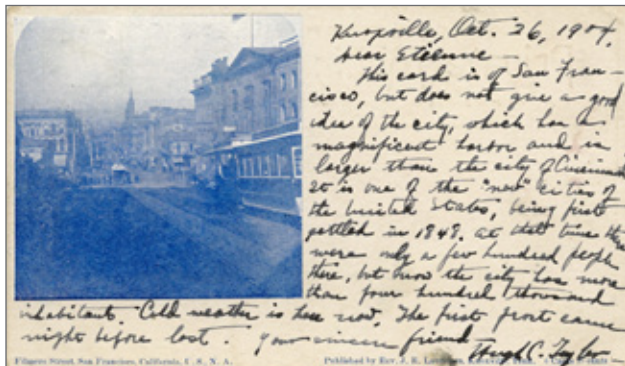 Knoxville, Oct. 26, 1904.
Dear Etienne —
This card is of San Fran-
cisco, but does not give a good
idea of the city, which has a
magnificent harbor and is
larger than the city of Cincinnati
It is one of the "new" cities of
the United States, being first
settled in 1848. At that time there
were only a few hundred people
there, but now the city has more
than four hundred thousand
inhabitants. Cold weather is here now. The first frost came
night before last. Your sincere friend
Hugh C. Tyler —
Street, San Francisco, California, U. S. N. A.
Published by Rev. J. R.